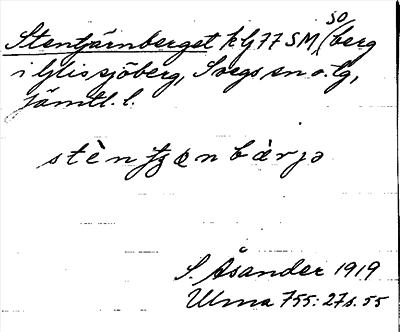 SO
Stentjärnberget kG77SM, (berg
i Glissjöberg, Svegs sn o. tg,
Jämtl. l.
stèntjænbàrjə
S. Åsander 1919
Ulma 755: 27 s. 55